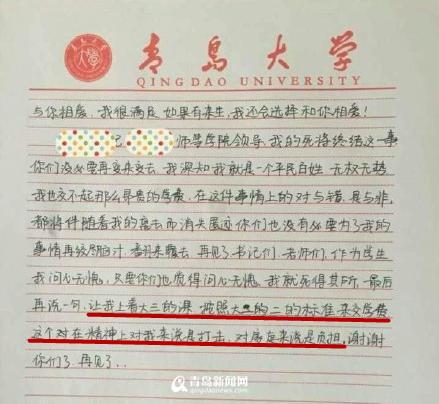 青岛大学
QINGDAO UNIVERSITY
与你相爱，我很满足，如果有来生，我还会选择和你相爱！
记，师医学院领导，我的死将终结这一事
你们没必要再变来变去，我深知我就是一个平民百姓 无权无势
我也交不起那么昂贵的学费，在这件事情上的对与错，是与非，
都将伴随着我的离去而消失匿迹 你们也没有必要为了我的
事情再绞尽脑汁，翻来覆去，再见了书记们，老师们，作为学生
我问心无愧，只要你们也觉得问心无愧，我就死得其所，最后
再说一句，让我上着大三的课，按照大二的标准来交学费
这个对在精神上对我来说是打击，对家庭来说是负担，谢谢
你们了，再见了...
青岛新闻网